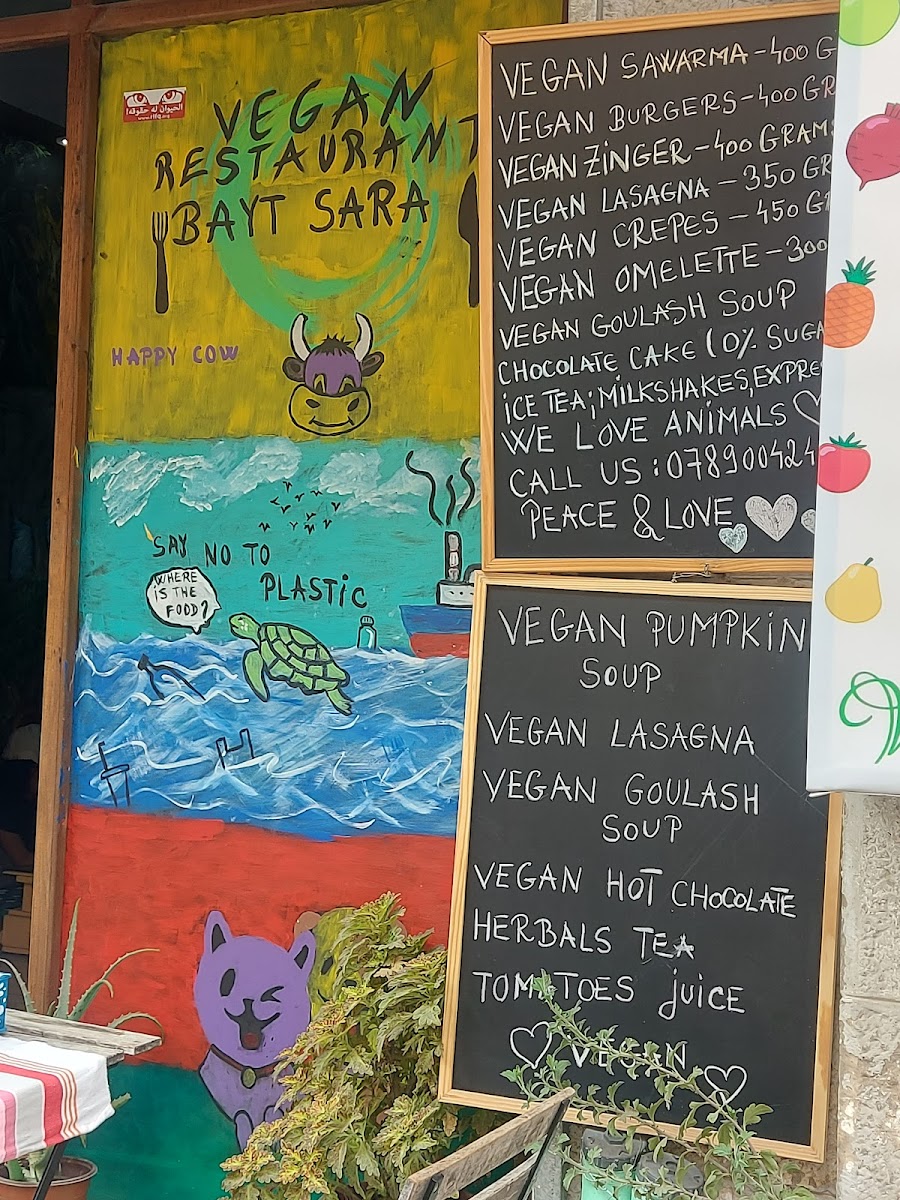 الحيوان له حقوقه!
VEGAN
RESTAURANT
BAYT SARA
HAPPY COW
SAY NO TO
PLASTIC
WHERE
IS THE
FOOD?
VEGAN SAWARMA-400 G
VEGAN BURGERS-400 GR
VEGAN ZINGER-400 GRAMS
VEGAN LASAGNA-350 GR
VEGAN CREPES-450 GR
VEGAN OMELETTE-300
VEGAN GOULASH SOUP
CHOCOLATE CAKE (0% SUGA
iCE TEA; MILKSHAKES, EXPRE
WE LOVE ANIMALS
CALL US: 078900424
PEACE & LOVE
VEGAN PUMPKIN
SOUP
VEGAN LASAGNA
VEGAN GOULASH
SOUP
VEGAN HOT CHOCOLATE
HERBALS TEA
TOMATOES juice
VEGAN